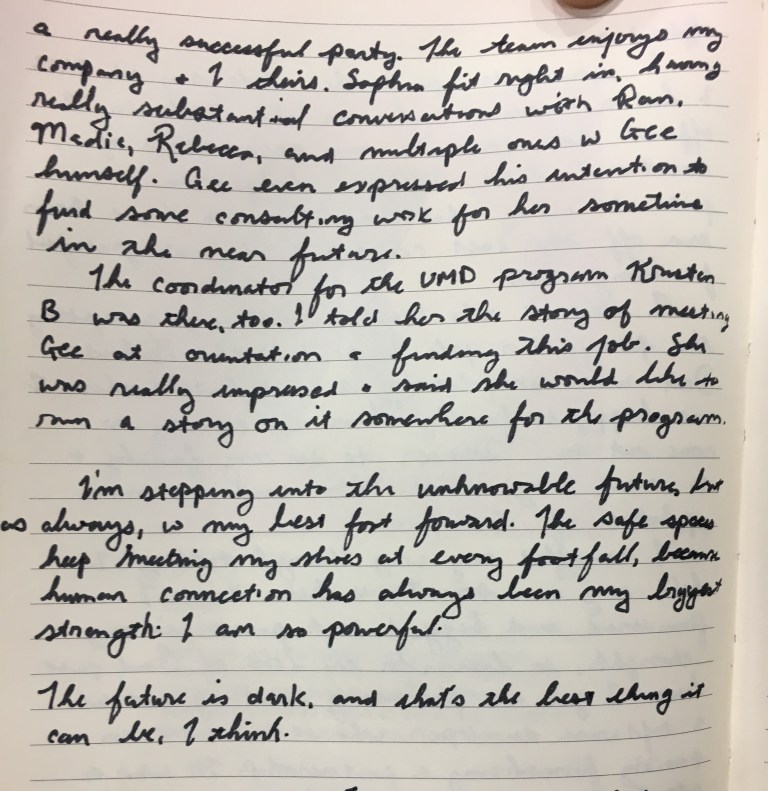 a really successful party. The team enjoys my
company + I theirs. Saphra fit right in, having
really substantial conversations with Ran,
Madie, Rebecca, and multiple ones w Gee
himself. Gee even expressed his intention to
find some consulting work for her sometime
in the near future.
The coordinator for the UMD program Kristen
B was there, too. I told her the story of meeting
Gee at orientation & finding this job. She
was really impressed & said she would like to
run a story on it somewhere for the program.
I'm stepping into the unknowable future, but
as always, w my best foot forward. The safe spaces
keep meeting my shoes at every footfall, because
human connection has always been my biggest
strength. I am so powerful.
The future is dark, and that's the best thing it
can be, I think.